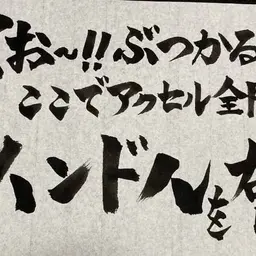 お〜!!ぶつかる
ここでアクセル全
ハンドルを右